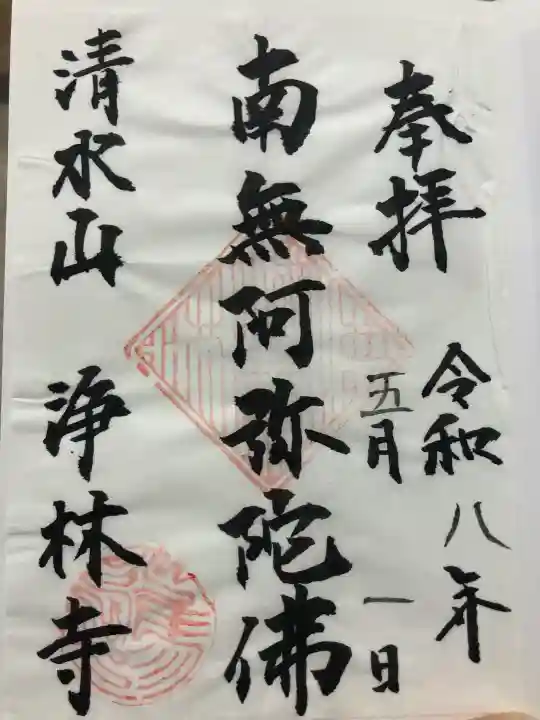 奉拝
令和八年
五月一日
南無阿弥陀佛
清水山 浄林寺